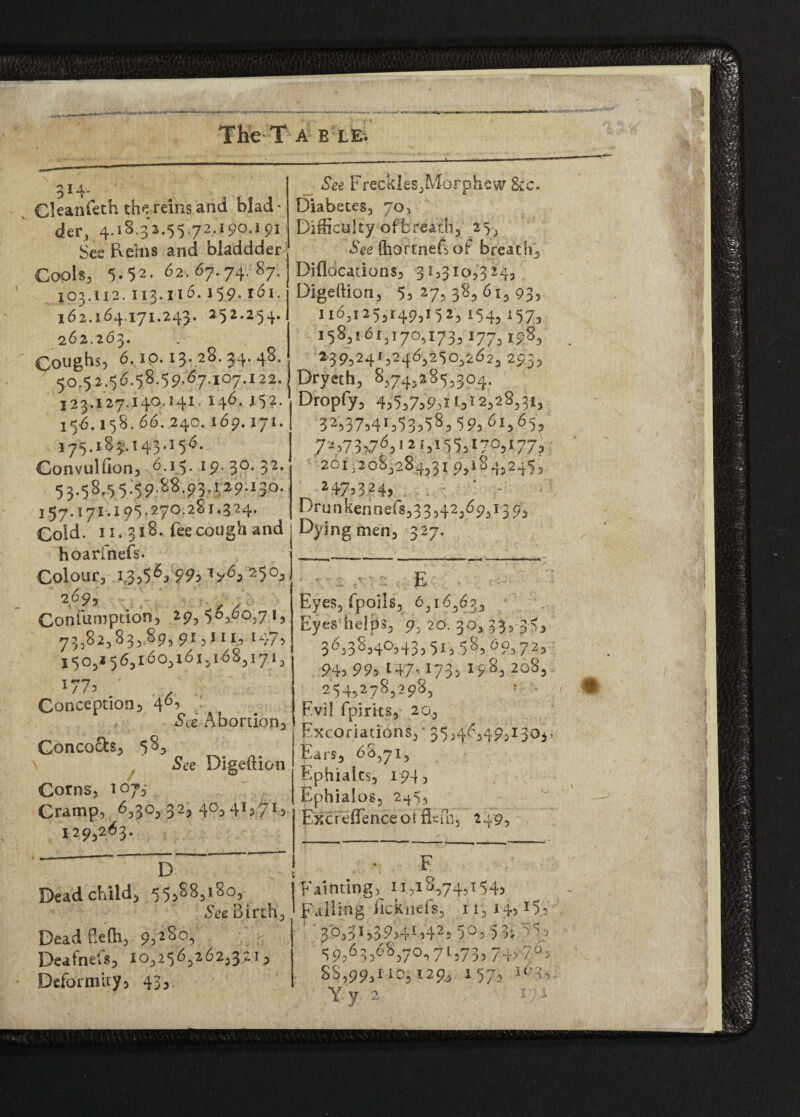 The TABLE.
314.
Cleanſeth the reins and blad-
der, 4.18.32.55.72.190.191
See Reins and bladdder
Cools, 5.52. 62. 67. 74. 87.
103.112. 113.116. 159. 161.
162.164.171.243. 252.254.
262.263.
Coughs, 6. 10. 13. 28. 34. 48.
50.52.56.58.59.67.107.122.
123.127.140.141. 146. 152.
156. 158. 66. 240. 169. 171.
175.185.143.156.
Convulſion, 6.15. 19. 30. 32.
53.58.55.59.88.93.129.130.
157.171.195.270.281.324.
Cold. 11. 318. ſee cough and
hoarſneſs.
Colour, 13,56, 99, 196, 250,
269,
Conſumption, 29, 56,60,71,
73,82,83,89, 91, 111, 147,
150,156,160,161,168,171,
177,
Conception, 46,
See Abortion,
Concocts, 58,
See Digeſtion
Corns, 107,
Cramp, 6,30, 32, 40, 41,71,
129,263.
D
Dead child, 55,88,180,
See Birth,
Dead fleſh, 9,280,
Deafneſs, 10,256,262,321,
Deformity, 43,
See Freckles,Morphew &c.
Diabetes, 70,
Difficulty of breath, 25,
See ſhortneſs of breath,
Diſlocations, 31,310,324,
Digeſtion, 5, 27, 38, 61, 93,
116,125,149,152, 154, 157,
158,161,170,173, 177, 198,
239,241,246,250,262, 293,
Dryeth, 8,74,285,304.
Dropſy, 4,5,7,9,11,12,28,31,
32,37,41,53,58, 59, 61, 65,
72,73,76,121,155,170,177,
201,208,284,319,184,245,
247,324,
Drunkenneſs,33,42,69,139,
Dying men, 327.
E
Eyes, ſpoils, 6,16,63,
Eyes helps, 9, 20. 30, 33, 35,
36,38,40,43, 51, 58, 69, 72,
94, 99, 147, 173, 198, 208,
254,278,298,
Evil ſpirits, 20,
Excoriations, 35,46,49,130,
Ears, 68,71,
Ephialts, 194,
Ephialos, 245,
Excreſſence of fleſh, 249,
F
Fainting, 11,18,74,154,
Falling ſickneſs, 11, 14, 15,
30,31,39,41,42, 50, 53, 55,
59,63,68,70, 71,73, 74, 76,
88,99,110,129, 157, 163,
Y y 2